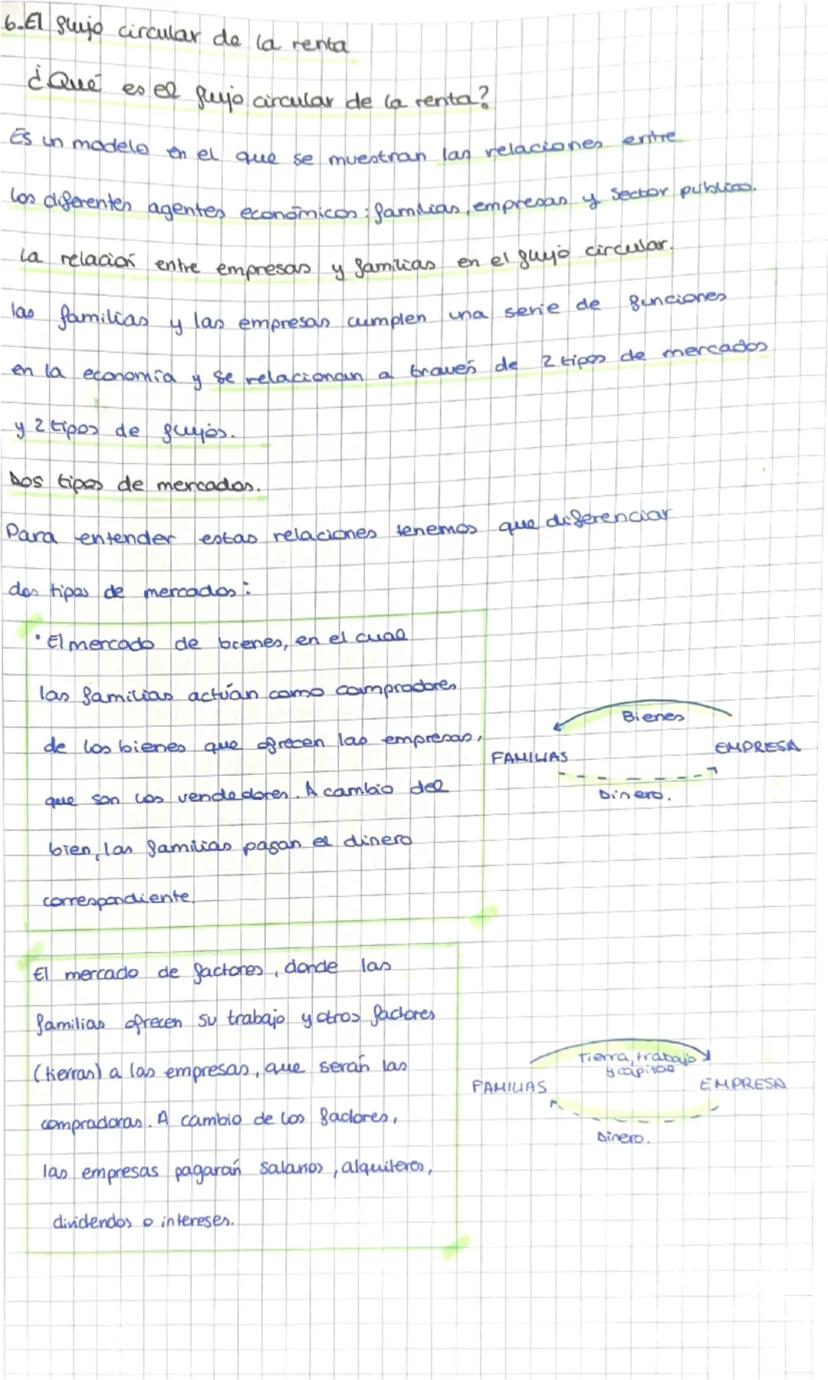 6.-El flujo circular de la renta
¿Qué es el flujo circular de la renta?
Es un modelo en el que se muestran las relaciones entre
los diferentes agentes económicos: familias, empresas y sector público.
La relación entre empresas y familias en el flujo circular.
las familias y las empresas cumplen una serie de funciones
en la economía y se relacionan a través de 2 tipos de mercados
y 2 tipos de flujos.
Dos tipos de mercados.
Para entender estas relaciones tenemos que diferenciar
dos tipos de mercados:
· El mercado de bienes, en el cual
las familias actúan como compradores
de los bienes que ofrecen las empresas,
que son los vendedores. A cambio del
bien, las familias pagan el dinero
correspondiente.
Bienes
FAMILIAS
EMPRESA
Dinero.
El mercado de factores, donde las
familias ofrecen su trabajo y otros factores
(tierras) a las empresas, que serán las
compradoras. A cambio de los factores,
las empresas pagarán salarios, alquileres,
dividendos o intereses.
Tierra, trabajo
y capital
FAMILIAS
EMPRESA
Dinero.